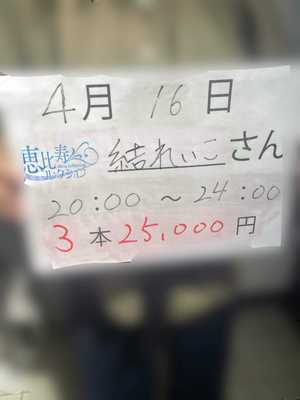 4月 16日
恵比寿
コレクション
結れいこさん
20:00 ~ 24:00
3 本 25,000 円